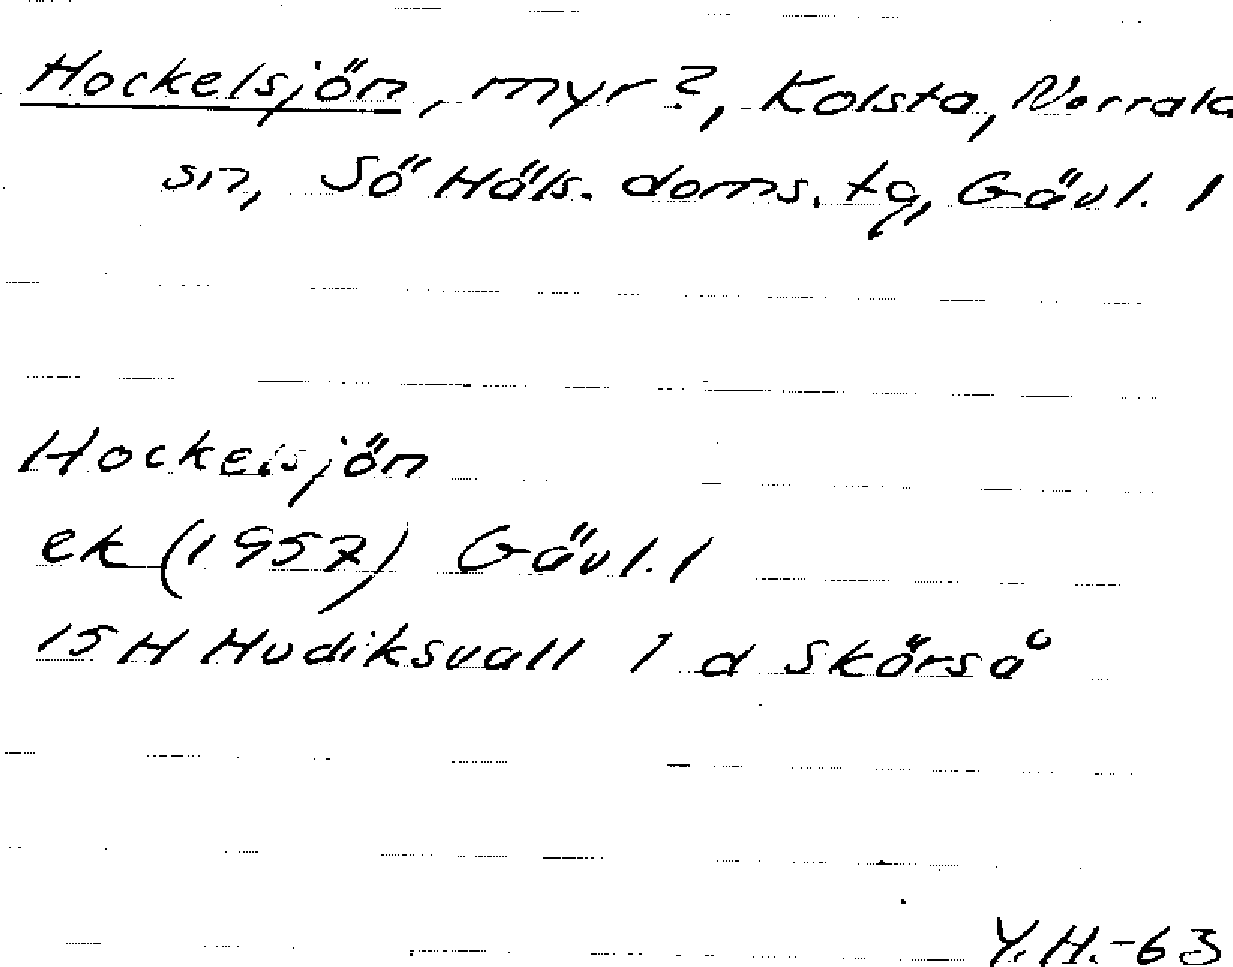 Hockelsjön, myr?, Kolsta, Norrala
sn, Sö Häls. doms. tg, Gävl. l
Hockelsjön
ek (1957) Gävl. l
15 H Hudiksvall 1 d Skärså
Y.H.-63